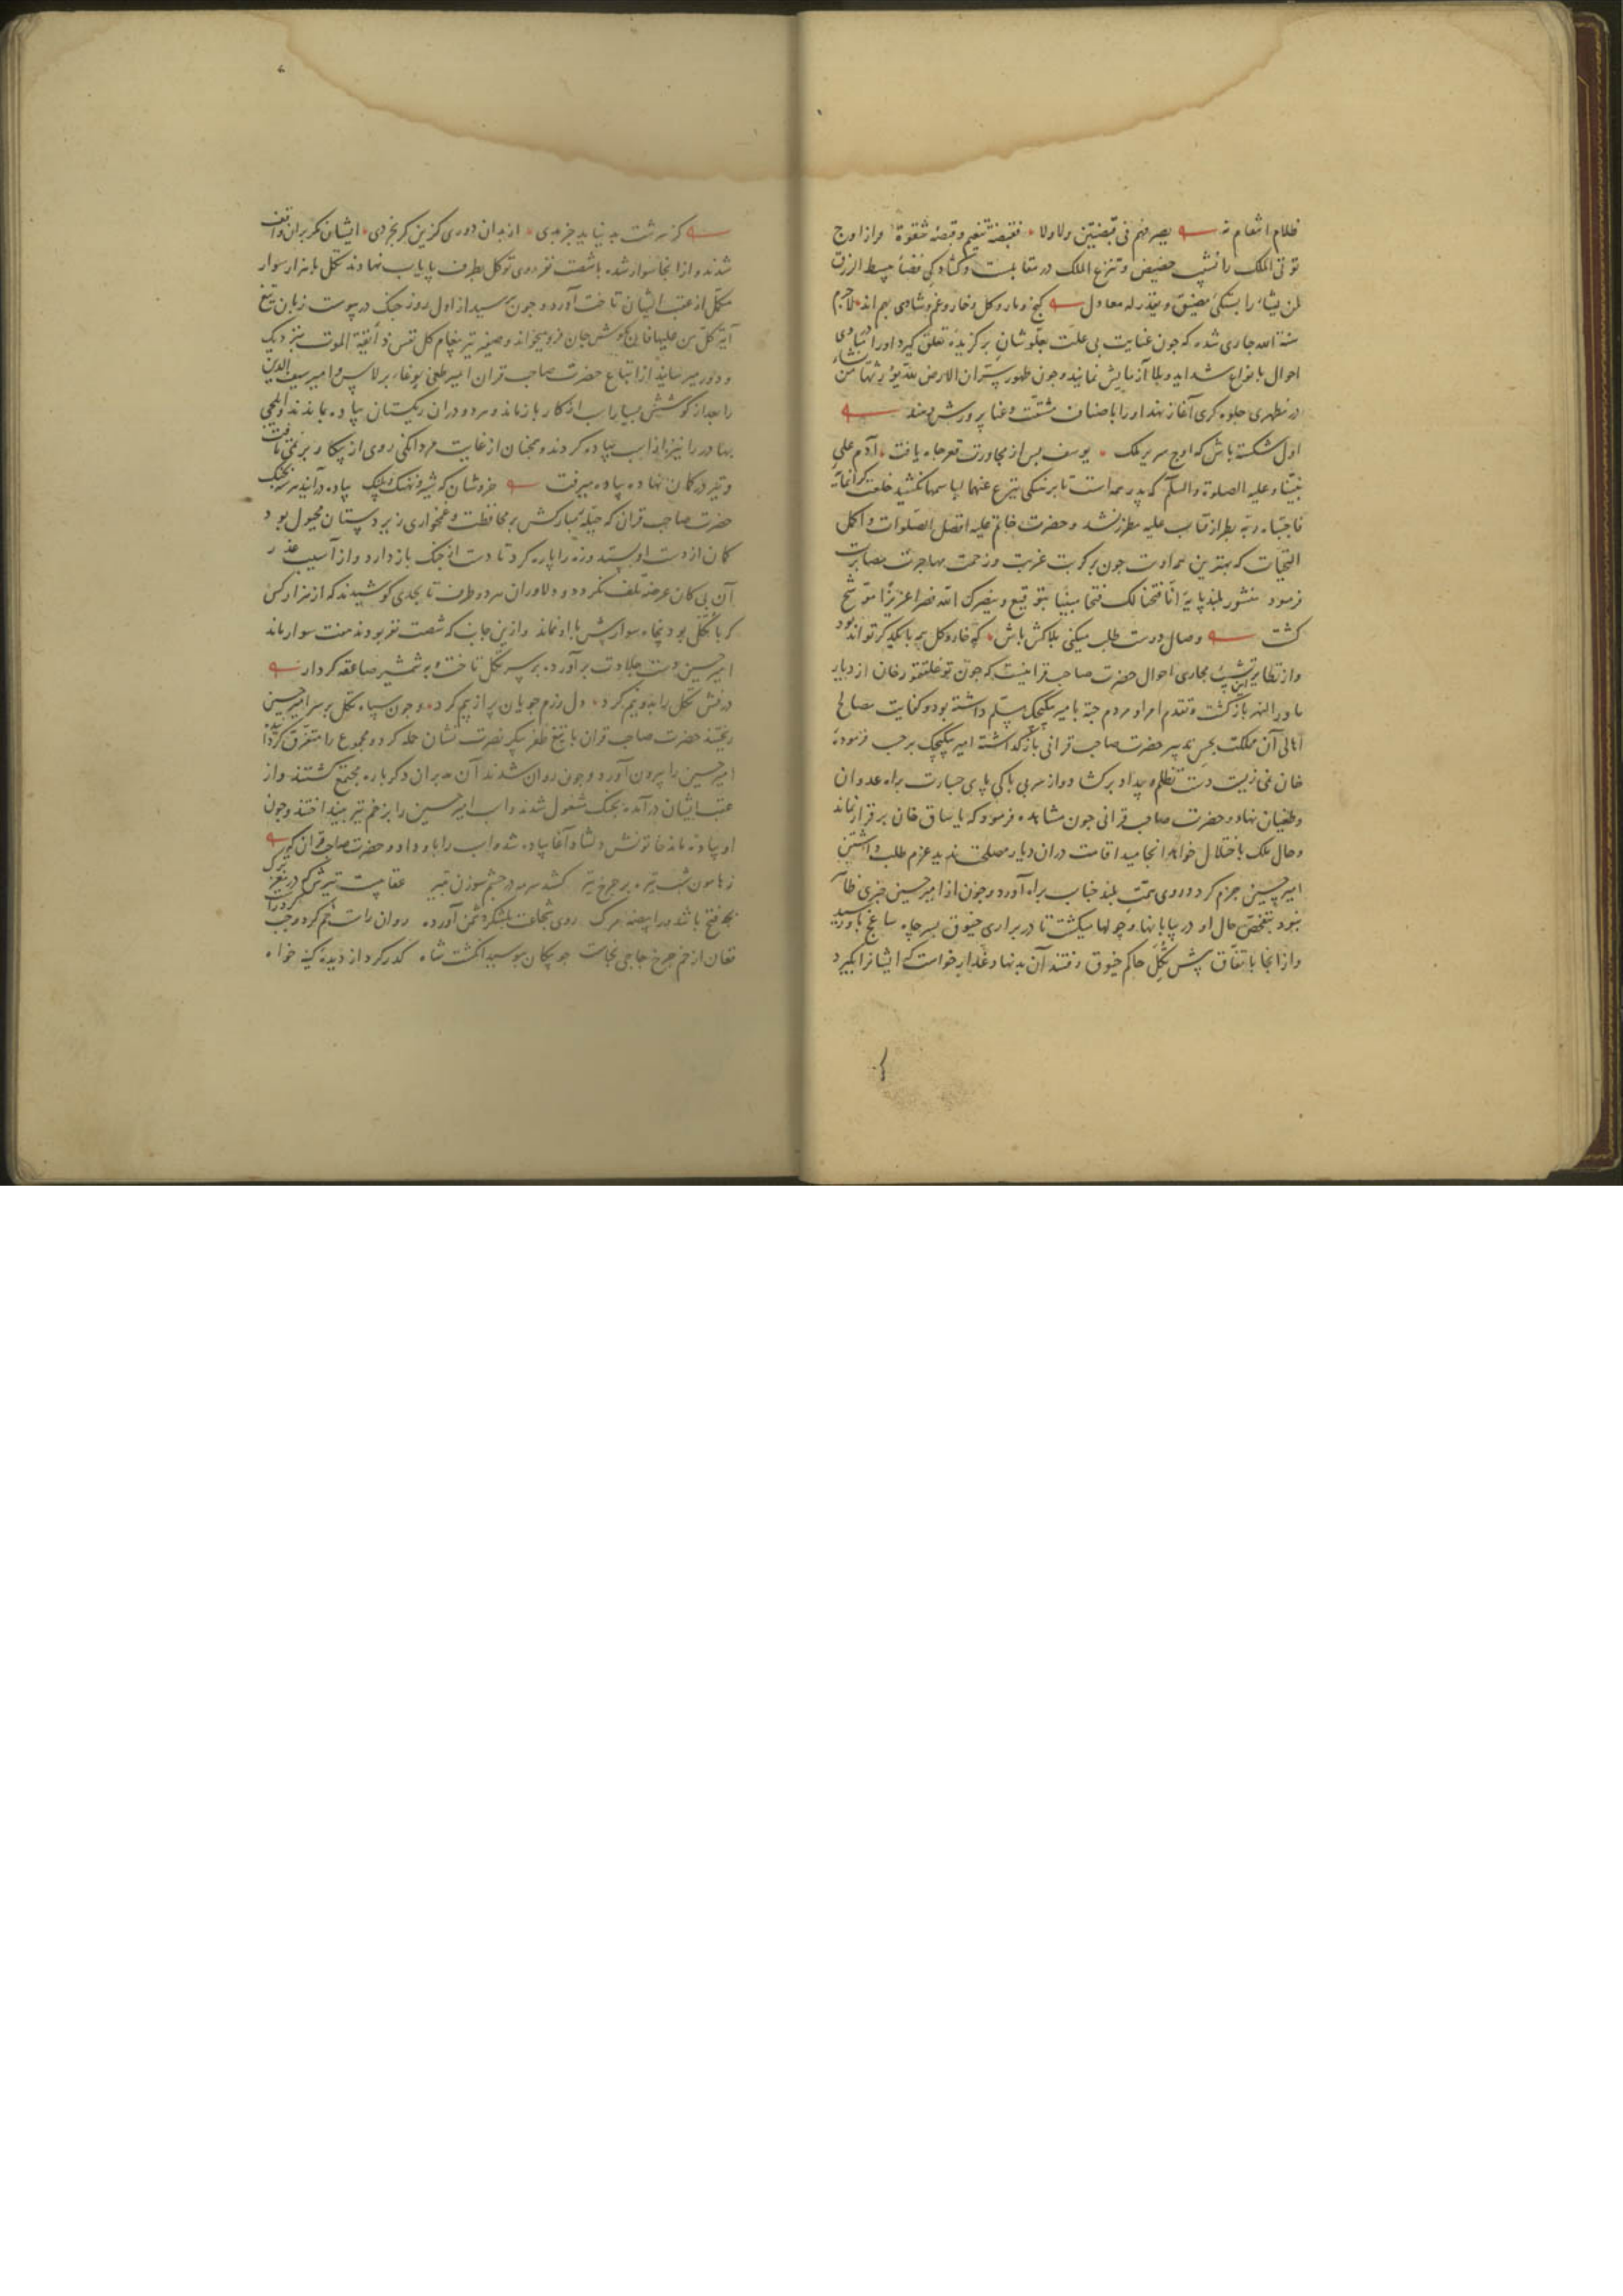 ظلام انتقام نه یصرفهم فی قبضتین ولاولا فقبضة تنعیم وقبضه شقوة و از اوج
توتی الملک را نشیب حضیض و تنزع الملک در مقابلست و کشادکی فضاء یبسط الرزق
لمن یشاء را بستکی مضیق و یقدر له معادل کنج و مار و کل و خار و غم و شادی بهم اند لاجرم
سنة الله جاری شده که چون عنایت بی علت بعلو شان برکزیده تعلق کیرد او را در مبادی
احوال بانواع شداید و بلا آزمایش نمایند و چون ظهور سر ان الارض لله یورثها من یشاء
در مظهری جلوه کری آغاز نهد او را باصناف مشقت و عنا پرورش دهند
اول شکسته باش که اوج سریر ملک یوسف پس از مجاورت قعر چاه یافت آدم علی
نبینا و علیه الصلوة والسلم که پدر همه است تا برهنکی ینزع عنهما لباسهما نکشید خلعت کرانمایه
فاجتباه ربه بطراز فتاب علیه مطرز نشد و حضرت خاتم علیه افضل الصلوات و اکمل
التحیات که بهترین همه اوست چون بر کربت غربت و زحمت مهاجرت مصابرت
فرمود منشور بلند پایه انا فتحنا لک فتحا مبینا بتوقیع و ینصرک الله نصرا عزیزا موشح
کشت وصال دوست طلب میکنی بلاکش باش که خار و کل همه با یکدکر تواند بود
و از نظایر این تشبیب مجاری احوال حضرت صاحب قرانیست که چون توغلقتمور خان از دیار
ماورا النهر بازکشت و تقدم امرا و مردم جته بامیر بیکیجک مسلم داشته بود و کفایت مصالح
اهالی آن مملکت بحسن تدبیر حضرت صاحب قرانی بازکذاشته امیر بیکیجک بر حسب فرموده
خان نمی زیست دست تظلم و بیداد برکشاد و از سر بی باکی پای جسارت براه عدوان
و طغیان نهاد و حضرت صاحب قرانی چون مشاهده فرمود که یاساق خان برقرار نماند
و حال ملک باختلال خواهد انجامید اقامت در آن دیار مصلحت ندید عزم طلب داشتن
امیر حسین جزم کرد و روی همت بلند جناب براه آورد و چون از امیر حسین خبری ظاهر
نبود بتفحص حال او در بیابانها و چولها میکشت تا در براری خیوق بسر چاه ساغج باو رسید
و از آنجا باتفاق پیش تکل حاکم خیوق رفتند آن بدنهاد غدار خواست که ایشانرا بکیرد
کز سرشت بد نیاید جز بدی از بدان دوری کزین کر بخردی ایشان بر مکر او واقف
شدند و از آنجا سوار شده با شصت نفر روی توکل بطرف پایاب نهادند تکل با هزار سوار
مکمل از عقب ایشان تاخت آورد و چون برسید از اول روز جنک در پیوست زبان تیغ
آیة کل من علیها فان بکوش جان فرو میخواند و صفیر تیر پیغام کل نفس ذائقة الموت بنزدیک
و دور میرسانید از اتباع حضرت صاحب قران امیر طغی بوغاء برلاس و امیر سیف الدین
را بعد از کوشش بسیار اسب از کار بازماند و هر دو در آن ریکستان پیاده بماندند و ایلچی
بهادر را نیز از اسب پیاده کردند و همچنان از غایت مردانکی روی از پیکار بر نمی تافت
و تیر در کمان نهاده پیاده میرفت خروشان که شیر و نهنک و پلنک پیاده درآیند هر سه بجنک
حضرت صاحب قران که جبله مبارکش بر محافظت و غمخواری زیردستان مجبول بود
کمان از دست او بستد و زه را پاره کرد تا دست از جنک باز دارد و از آسیب غدر
آن بی کان عرضه تلف نکردد و دلاوران هر دو طرف تا بحدی کوشیدند که از هزار کس
که با تکل بود پنجاه سوار بیش با او نماند و ازین جانب که شصت نفر بودند هفت سوار ماند
امیر حسین دست جلادت برآورده بر سر تکل تاخت و به شمشیر صاعقه کردار
درفش تکل را بدو نیم کرد دل رزم جویان پر از بیم کرد و چون سپاه تکل بر سر امیر حسین
ریختند حضرت صاحب قران با تیغ ظفر پیکر نصرت نشان حمله کرد و مجموع را متفرق کردانیده
امیر حسین را بیرون آورد و چون روان شدند آن مدبران دکرباره مجتمع کشتند و از
عقب ایشان درآمده بجنک مشغول شدند و اسب امیر حسین را بزخم تیر بینداختند و چون
او پیاده ماند خاتونش دلشاد آغا پیاده شد و اسب را باو داد و حضرت صاحب قران
ز هامون شب تیره بر چرخ تیر کشد سرمه در چشم سوزن بتیر عقابیست تیرش که در مغز کرک
بجه فتح باشد ورا بیضه مرک روی شجاعت بلشکر دشمن آورده روان راست خم کرد و چپ کرد راست
فغان از خم چرخ چاچی بخاست چو پیکان ببوسید انکشت شاه کذر کرد از دیده کینه خواه